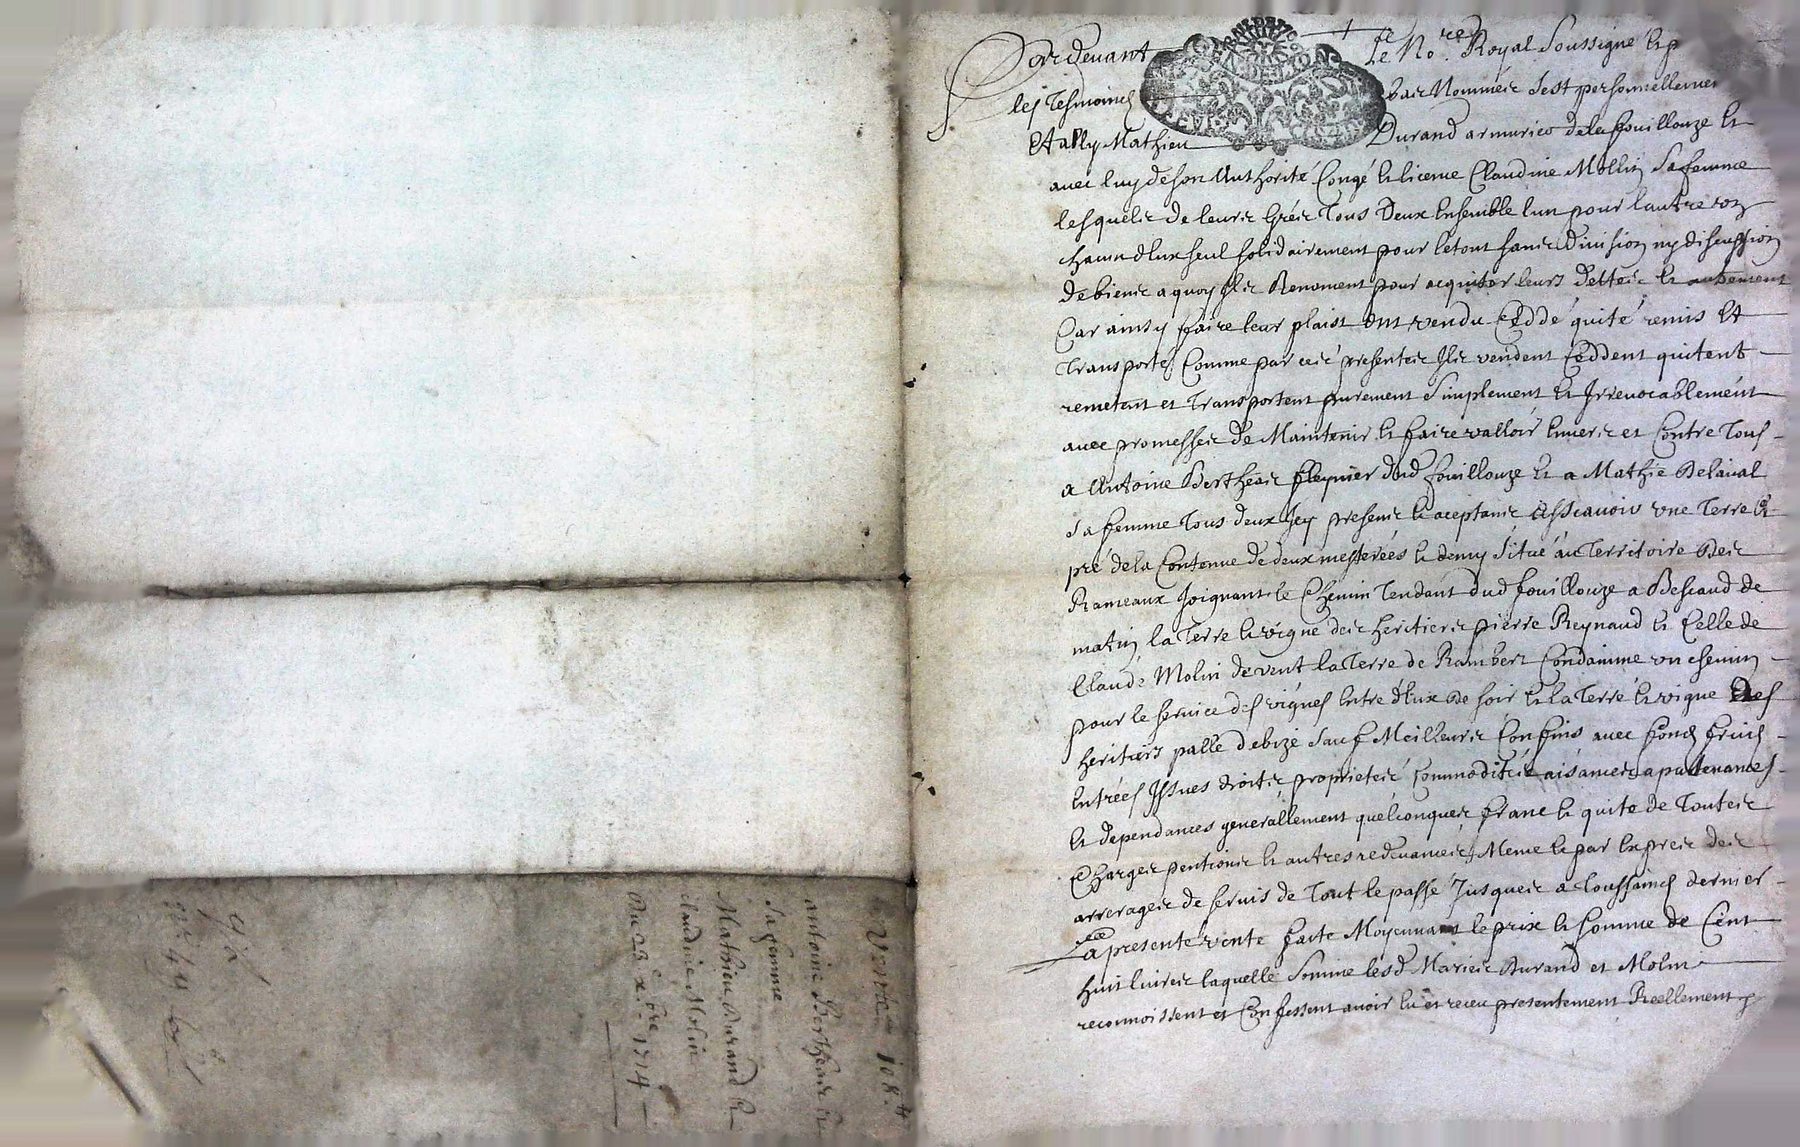 Pardevant Le No.re Royal Soussigné Et p
les Tesmoings bas Nommés S'est personnellemen
Etably Mathieu Durand armurier de la fouillouze Et
avec luy de son Authorité Congé Et licence Claudine Mollin Sa femme
lesquels de leurs Grés Tous Deux Ensemble l'un pour l'autre
chacun d'Eux seul solidairement pour le tout sans division ny discussion
de biens a quoy Ils Renoncent pour acquiter leurs dettes Et autrement
Car ainsy faire leur plaist ont vendu Ceddé quité remis Et
Transporté Comme par ces presentes Ils vendent Ceddent quitent
remetent et Transportent purement Simplement Et Irrevocablement
avec promesse de Maintenir Et faire valloir Envers et Contre Tous
a Antoine Berthéas dud fouillouze Et a Mathie Delaval
Sa femme Tous deux Icy presens Et aceptans Assçavoir une Terre Et
pré de la Contenue de deux mesterées Et demy Situé au Territoire Des
Rameaux Joignant le Chemin Tendant dud fouillouze a de
matin la Terre Et vigne des heritiers pierre Reynaud Et Celle de
Claude Molin de vent la Terre de Rambert Condamine un chemin
pour le service des vignes Entre d'Eux de soir Et la Terre Et vigne Des
heritiers palle debize Sauf Meilleurs Confins avec fonds fruits
Entrées Issues droits proprietés Commodités aisances apartenances
Et dependances generallement quelconques franc Et quite de Toutes
Charges pentions Et autres redevances Meme Et par Expres des
arrerages de servis de Tout le passé Jusques a Toussaincts dernier
La presente vente faite Moyennant le prix Et somme de Cent
huit livres laquelle Somme lesd Mariés Durand et Molin
reconnoissent et Confessent avoir Eu et receu presentement Reellement
Vente 108 #
antoine Bertheas Et
Sa femme
Mathieu Durand Et
Claudine Molin
Du 28 x.bre 1714